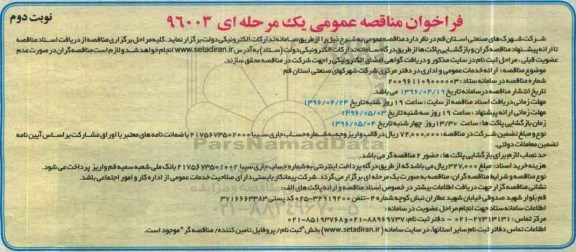 نوبت دوم
فراخوان مناقصه عمومی یک مرحله ای ۹۶۰۰۳
شرکت شهرک های صنعتی استان قم در نظر دارد مناقصه عمومی به شرح ذیل را از طریق سامانه تدارکات الکترونیکی دولت برگزار نماید. کلیه مراحل برگزاری مناقصه از دریافت اسناد مناقصه
تا ارائه پیشنهاد مناقصه گران و بازگشایی پاکت ها از طریق درگاه سامانه تدارکات الکترونیکی دولت (ستاد) به آدرس www.setadiran.ir انجام خواهد شد و لازم است مناقصه گران در صورت عدم
عضویت قبلی، مراحل ثبت نام در سایت مذکور و دریافت گواهی امضای الکترونیکی را جهت شرکت در مناقصه محقق سازند.
موضوع مناقصه: ارائه خدمات عمومی و اداری در دفتر مرکزی شرکت شهرکهای صنعتی استان قم
شماره مناقصه در سامانه ستاد: ۲۰۰۹۶۱۱۰۹۰۰۰۰۰۳
تاریخ انتشار مناقصه در سامانه تاریخ ۱۳۹۶/۰۴/۱۹ می باشد.
مهلت زمانی دریافت اسناد مناقصه از سایت: ساعت ۱۹ روز شنبه تاریخ ۱۳۹۶/۰۴/۲۴
مهلت زمانی ارائه پیشنهاد: ساعت ۱۹ روز سه شنبه تاریخ ۱۳۹۶/۰۵/۰۳
زمان بازگشایی پاکت ها: ساعت ۱۳/۳۰ روز چهارشنبه تاریخ ۱۳۹۶/۰۵/۰۴
نوع و مبلغ تضمین شرکت در مناقصه: ۷۲,۰۰۰,۰۰۰ ریال در قالب واریز وجه به شماره حساب جاری سیبا ۲۱۷۵۶۷۳۵۰۲۰۰۰ یا ضمانت نامه های معتبر یا اوراق مشارکت بر اساس آیین نامه
تضمین معاملات دولتی.
حد نصاب لازم برای بازگشایی پاکت ها: حضور ۲ مناقصه گر می باشد.
هزینه خرید اسناد: مبلغ ۳۲۷,۰۰۰ ریال می باشد که از طریق درگاه پرداخت اینترنتی به شماره حساب جاری سیبا ۲۱۷۵۶۷۳۵۰۱۰۰۲ بانک ملی شعبه سمیه قم واریز پرداخت می شود.
نوع مناقصه و شرایط مناقصه گران: مناقصه به صورت یک مرحله ای برگزار می گردد. شرکت پیمانکار بایستی دارای صلاحیت خدمات عمومی از اداره کار و امور اجتماعی باشد.
نشانی مناقصه گزار جهت دریافت اطلاعات بیشتر در خصوص اسناد مناقصه و ارائه پاکت های الف:
قم بلوار شهید صدوقی خیابان شهید عطاران نبش کوچه شماره ۴ تلفن: ۳۲۹۱۹۲۰۰-۰۲۵ کد پستی ۳۷۱۶۶۶۳۳۸۳
اطلاعات سامانه ستاد جهت انجام مراحل عضویت در سامانه:
مرکز تماس: ۲۷۳۱۳۱۳۱-۰۲۱ دفتر ثبت نام: ۸۸۹۶۹۷۳۷-۰۲۱ و ۸۵۱۹۳۷۶۸-۰۲۱
اطلاعات تماس دفاتر ثبت نام سایر استانها، در سایت سامانه (www.setadiran.ir) بخش "ثبت نام / پروفایل تامین کننده / مناقصه گر" موجود است.
ParsNamadData